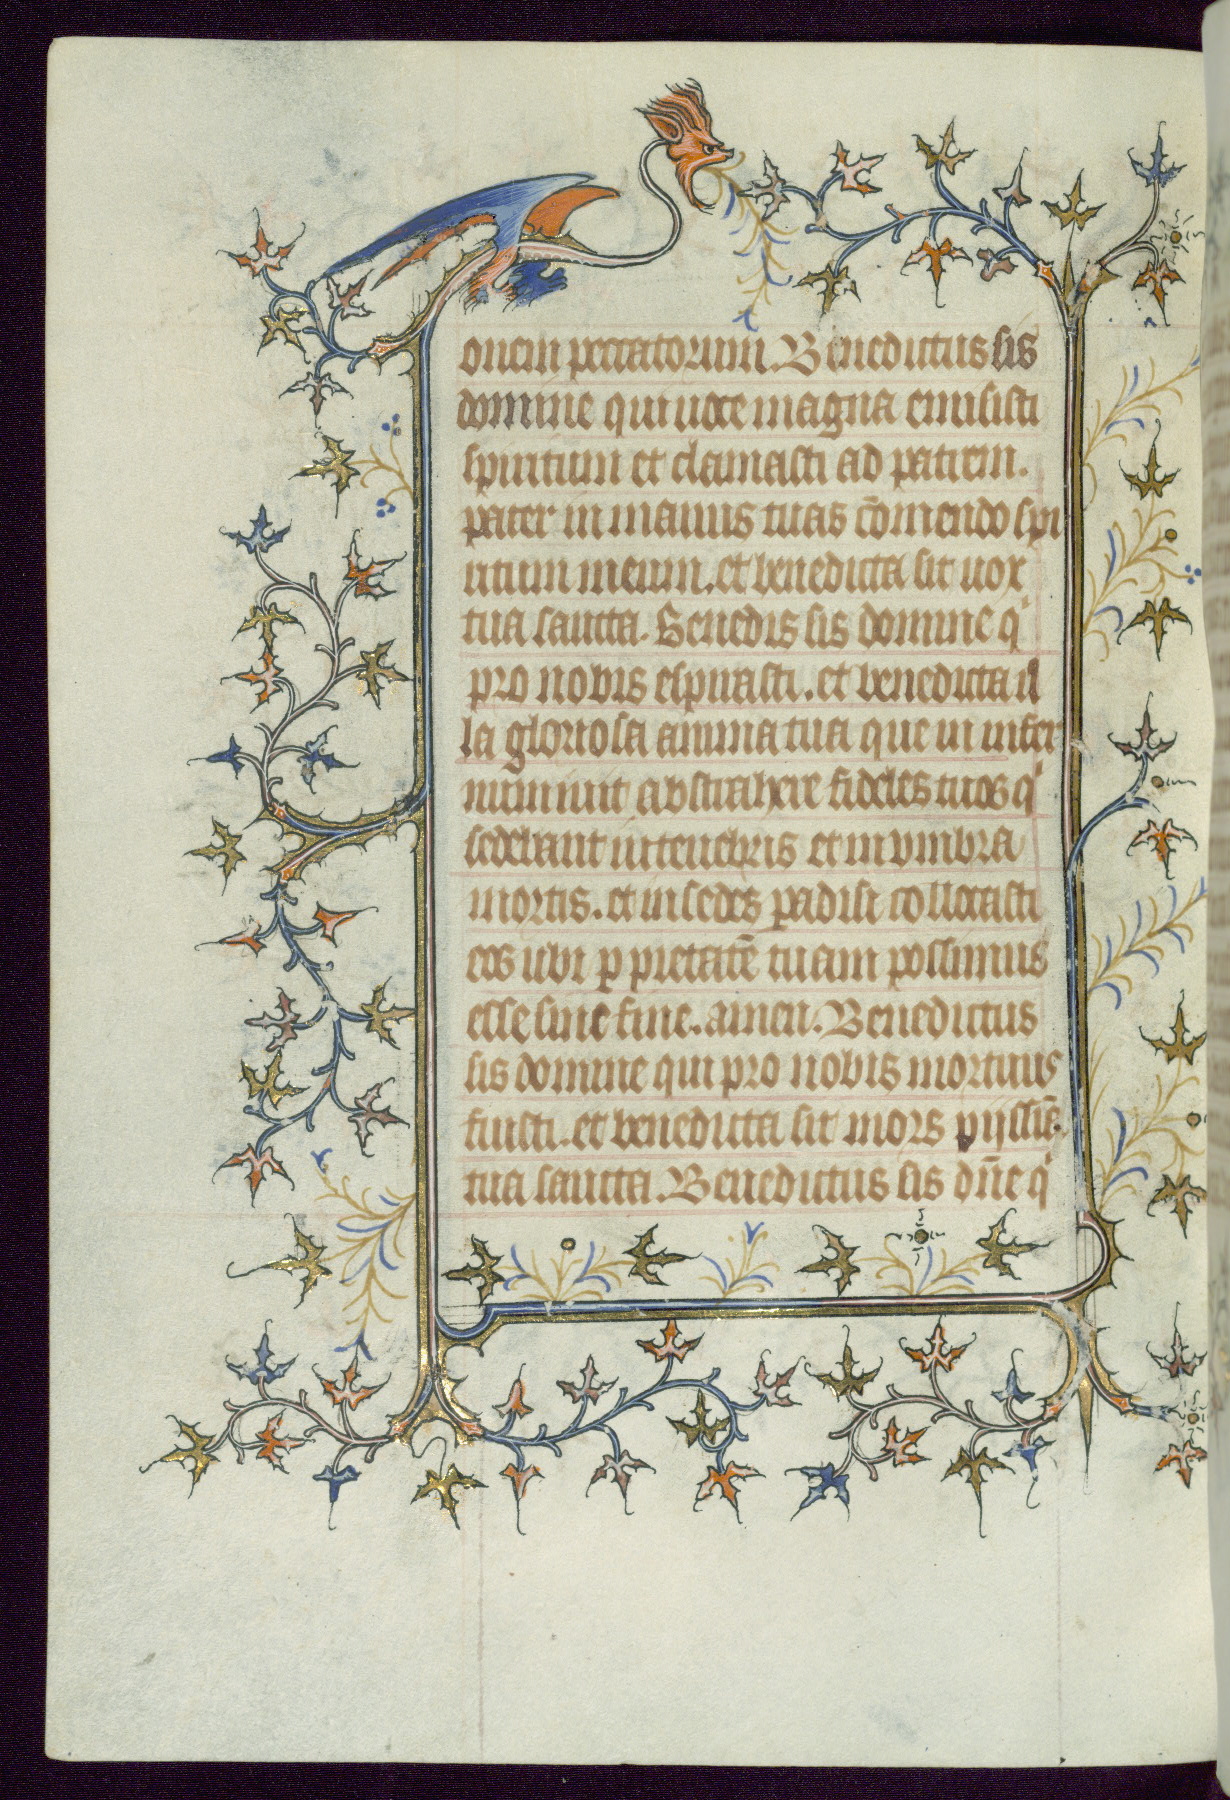 onem peccatorum. Benedictus sis
domine qui uoce magna emisisti
spiritum et clamasti ad patrem.
pater in manus tuas cōmendo spi
ritum meum. et benedicta sit uox
tua sancta. Benedis sis domine q
pro nobis espirasti. et benedicta il
la gloriosa anima tua que in infer
num iuit abstrahere fideles tuos q
sedebant in tenebris et in vmbra
mortis. et in sedes padisi collocasti
eos ubi p pietatē tuam possimus
esse sine fine. amen. Benedictus
sis domine qui pro nobis mortuus
fuisti. et benedicta sit mors pijssīa
tua sancta. Benedictus sis dn̄e q